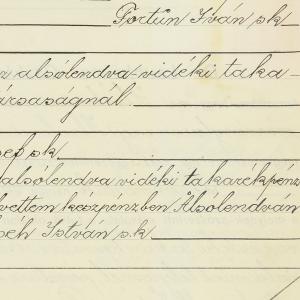 Fortún Iván sk
alsólendva-vidéki taka-
társaságnál.
sef sk
alsólendva vidéki takarékpénz
vettem készpénzben Alsólendván
István s.k.